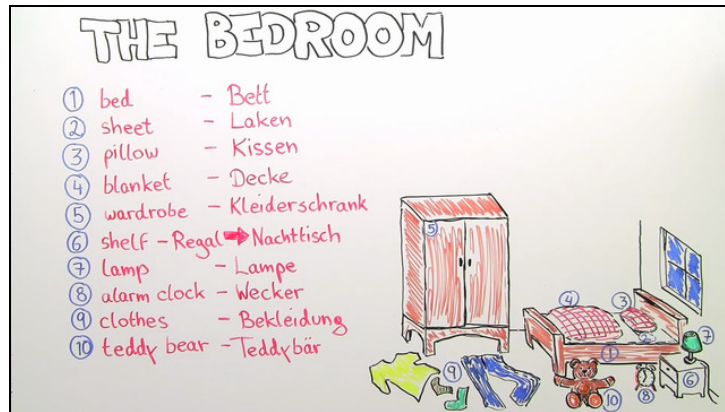 THE BEDROOM
① bed - Bett
② sheet - Laken
③ pillow - Kissen
④ blanket - Decke
⑤ wardrobe - Kleiderschrank
⑥ shelf - Regal ➡ Nachttisch
⑦ lamp - Lampe
⑧ alarm clock - Wecker
⑨ clothes - Bekleidung
⑩ teddy bear - Teddybär
⑤
④
③
②
⑦
①
⑨
⑥
⑩
⑧